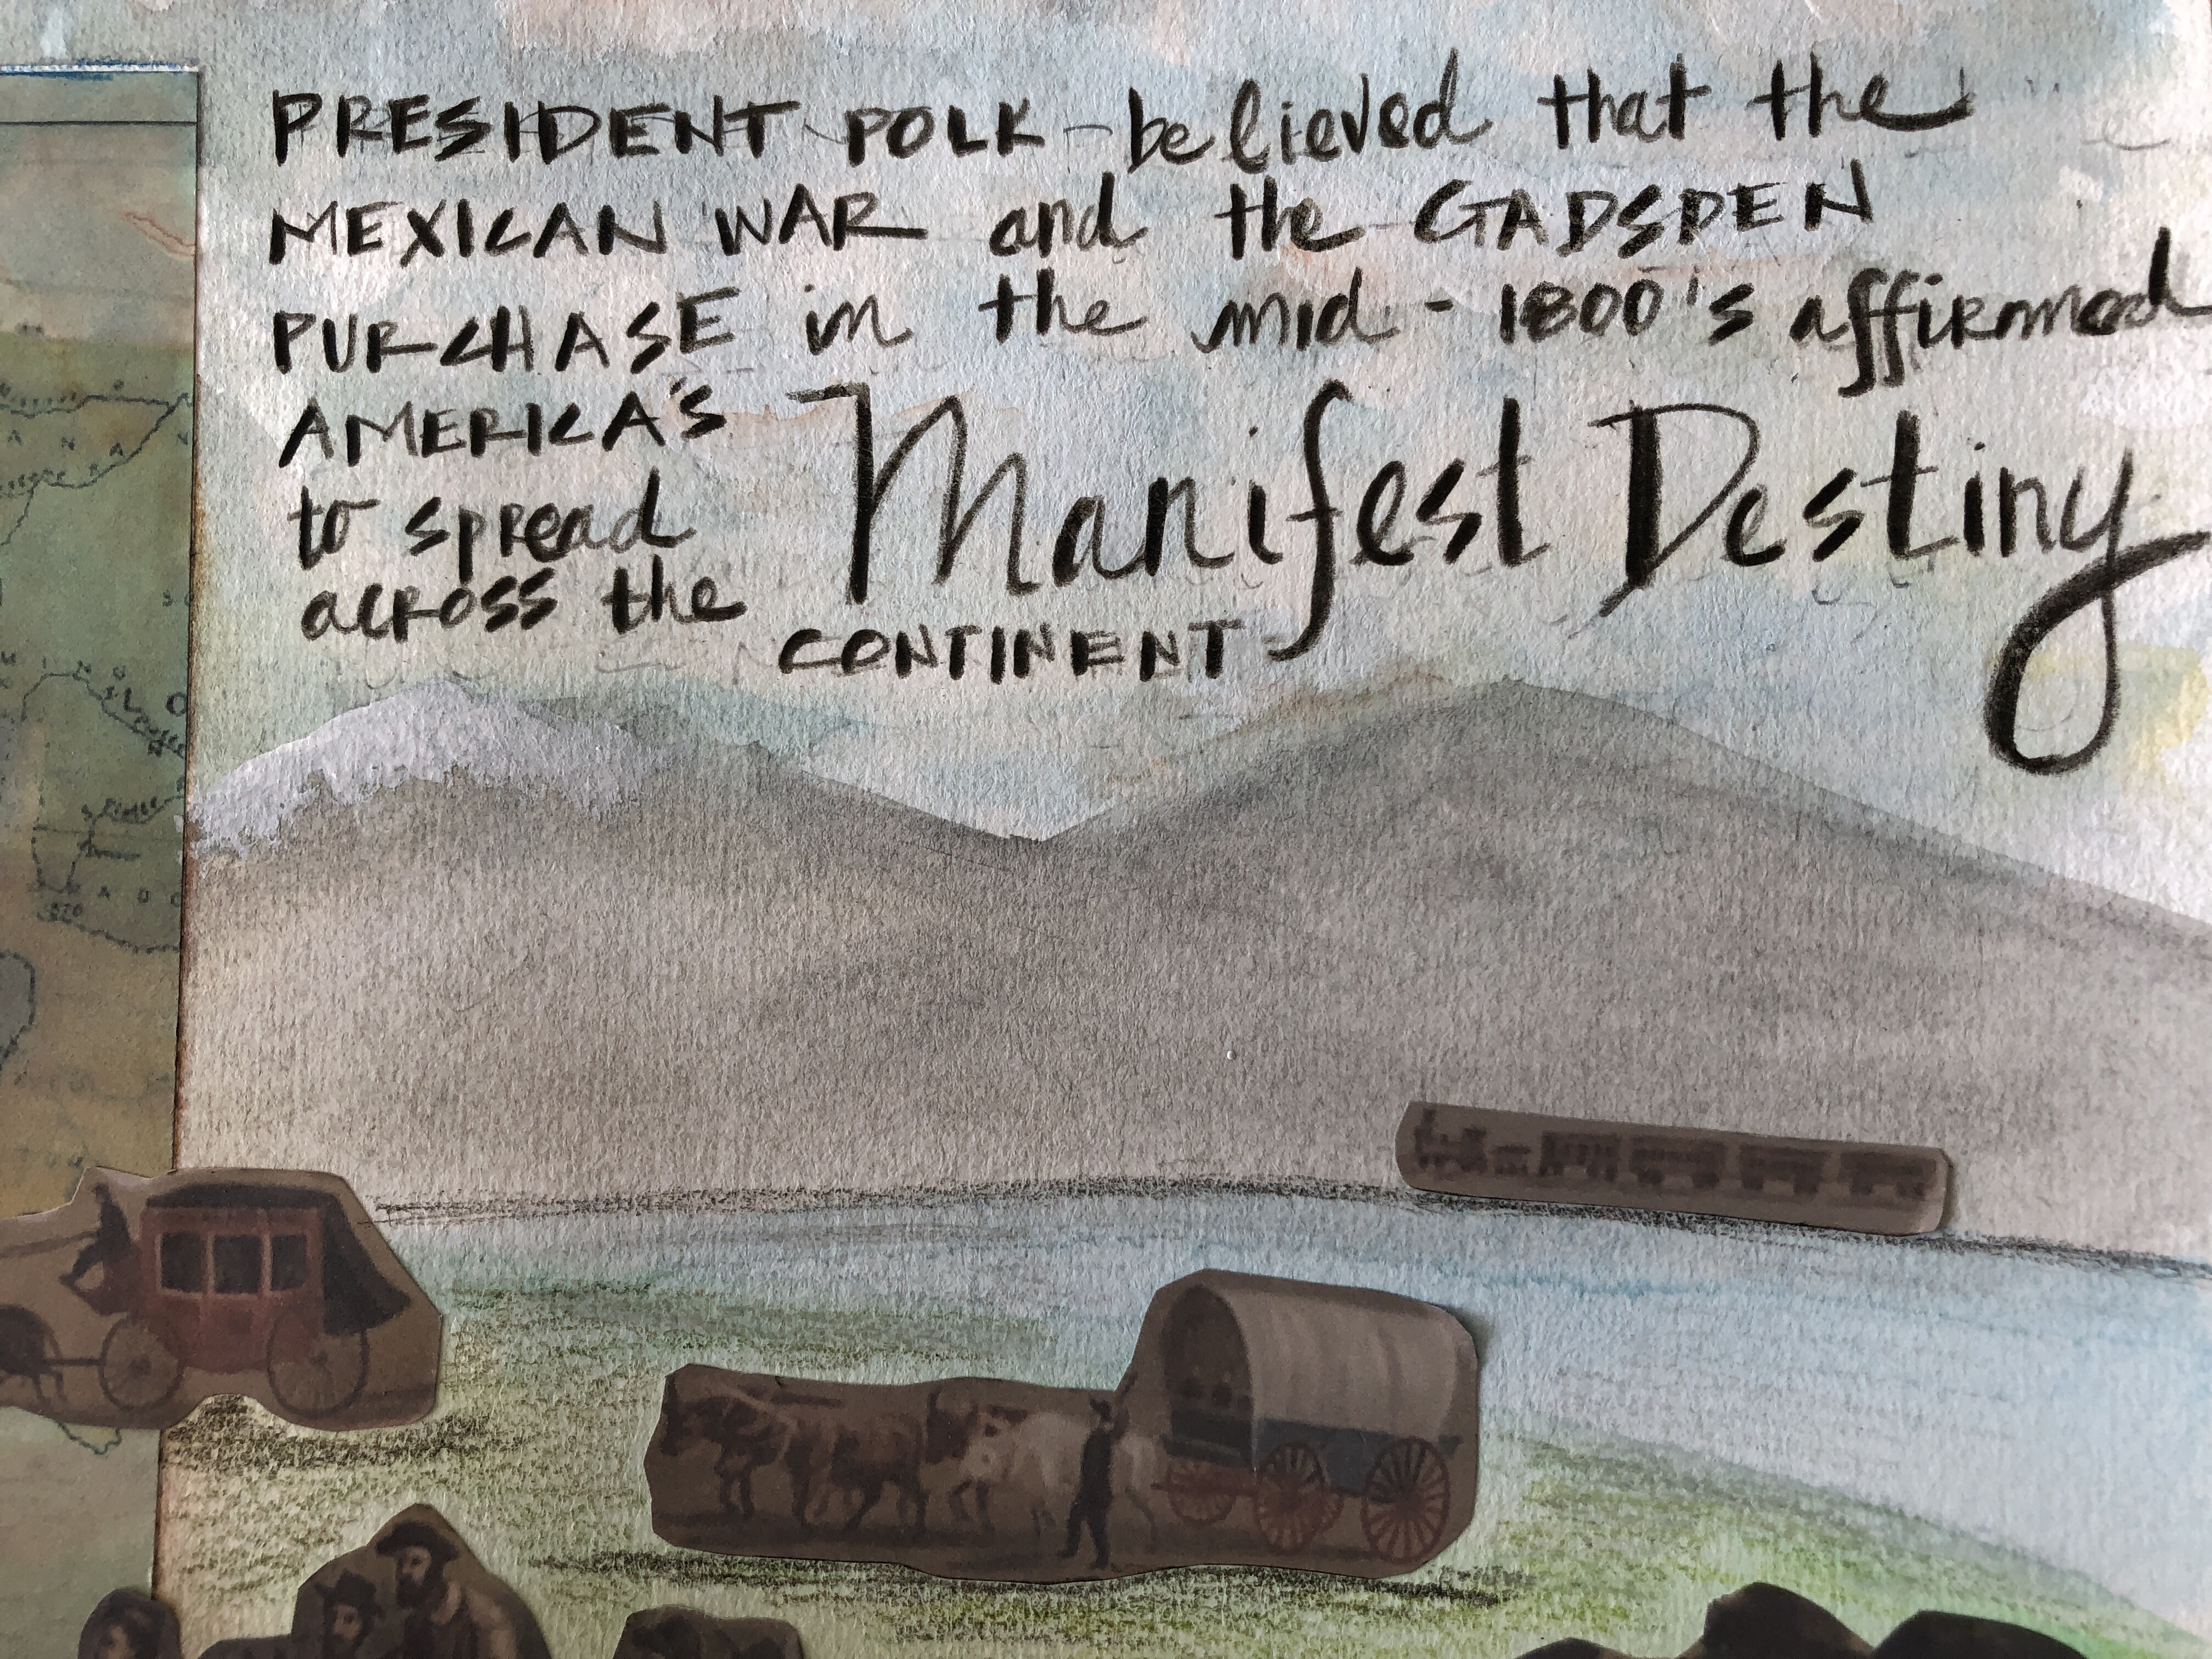 PRESIDENT POLK believed that the
MEXICAN WAR and the GADSDEN
PURCHASE in the mid-1800's affirmed
AMERICA'S Manifest Destiny
to spread
across the
CONTINENT